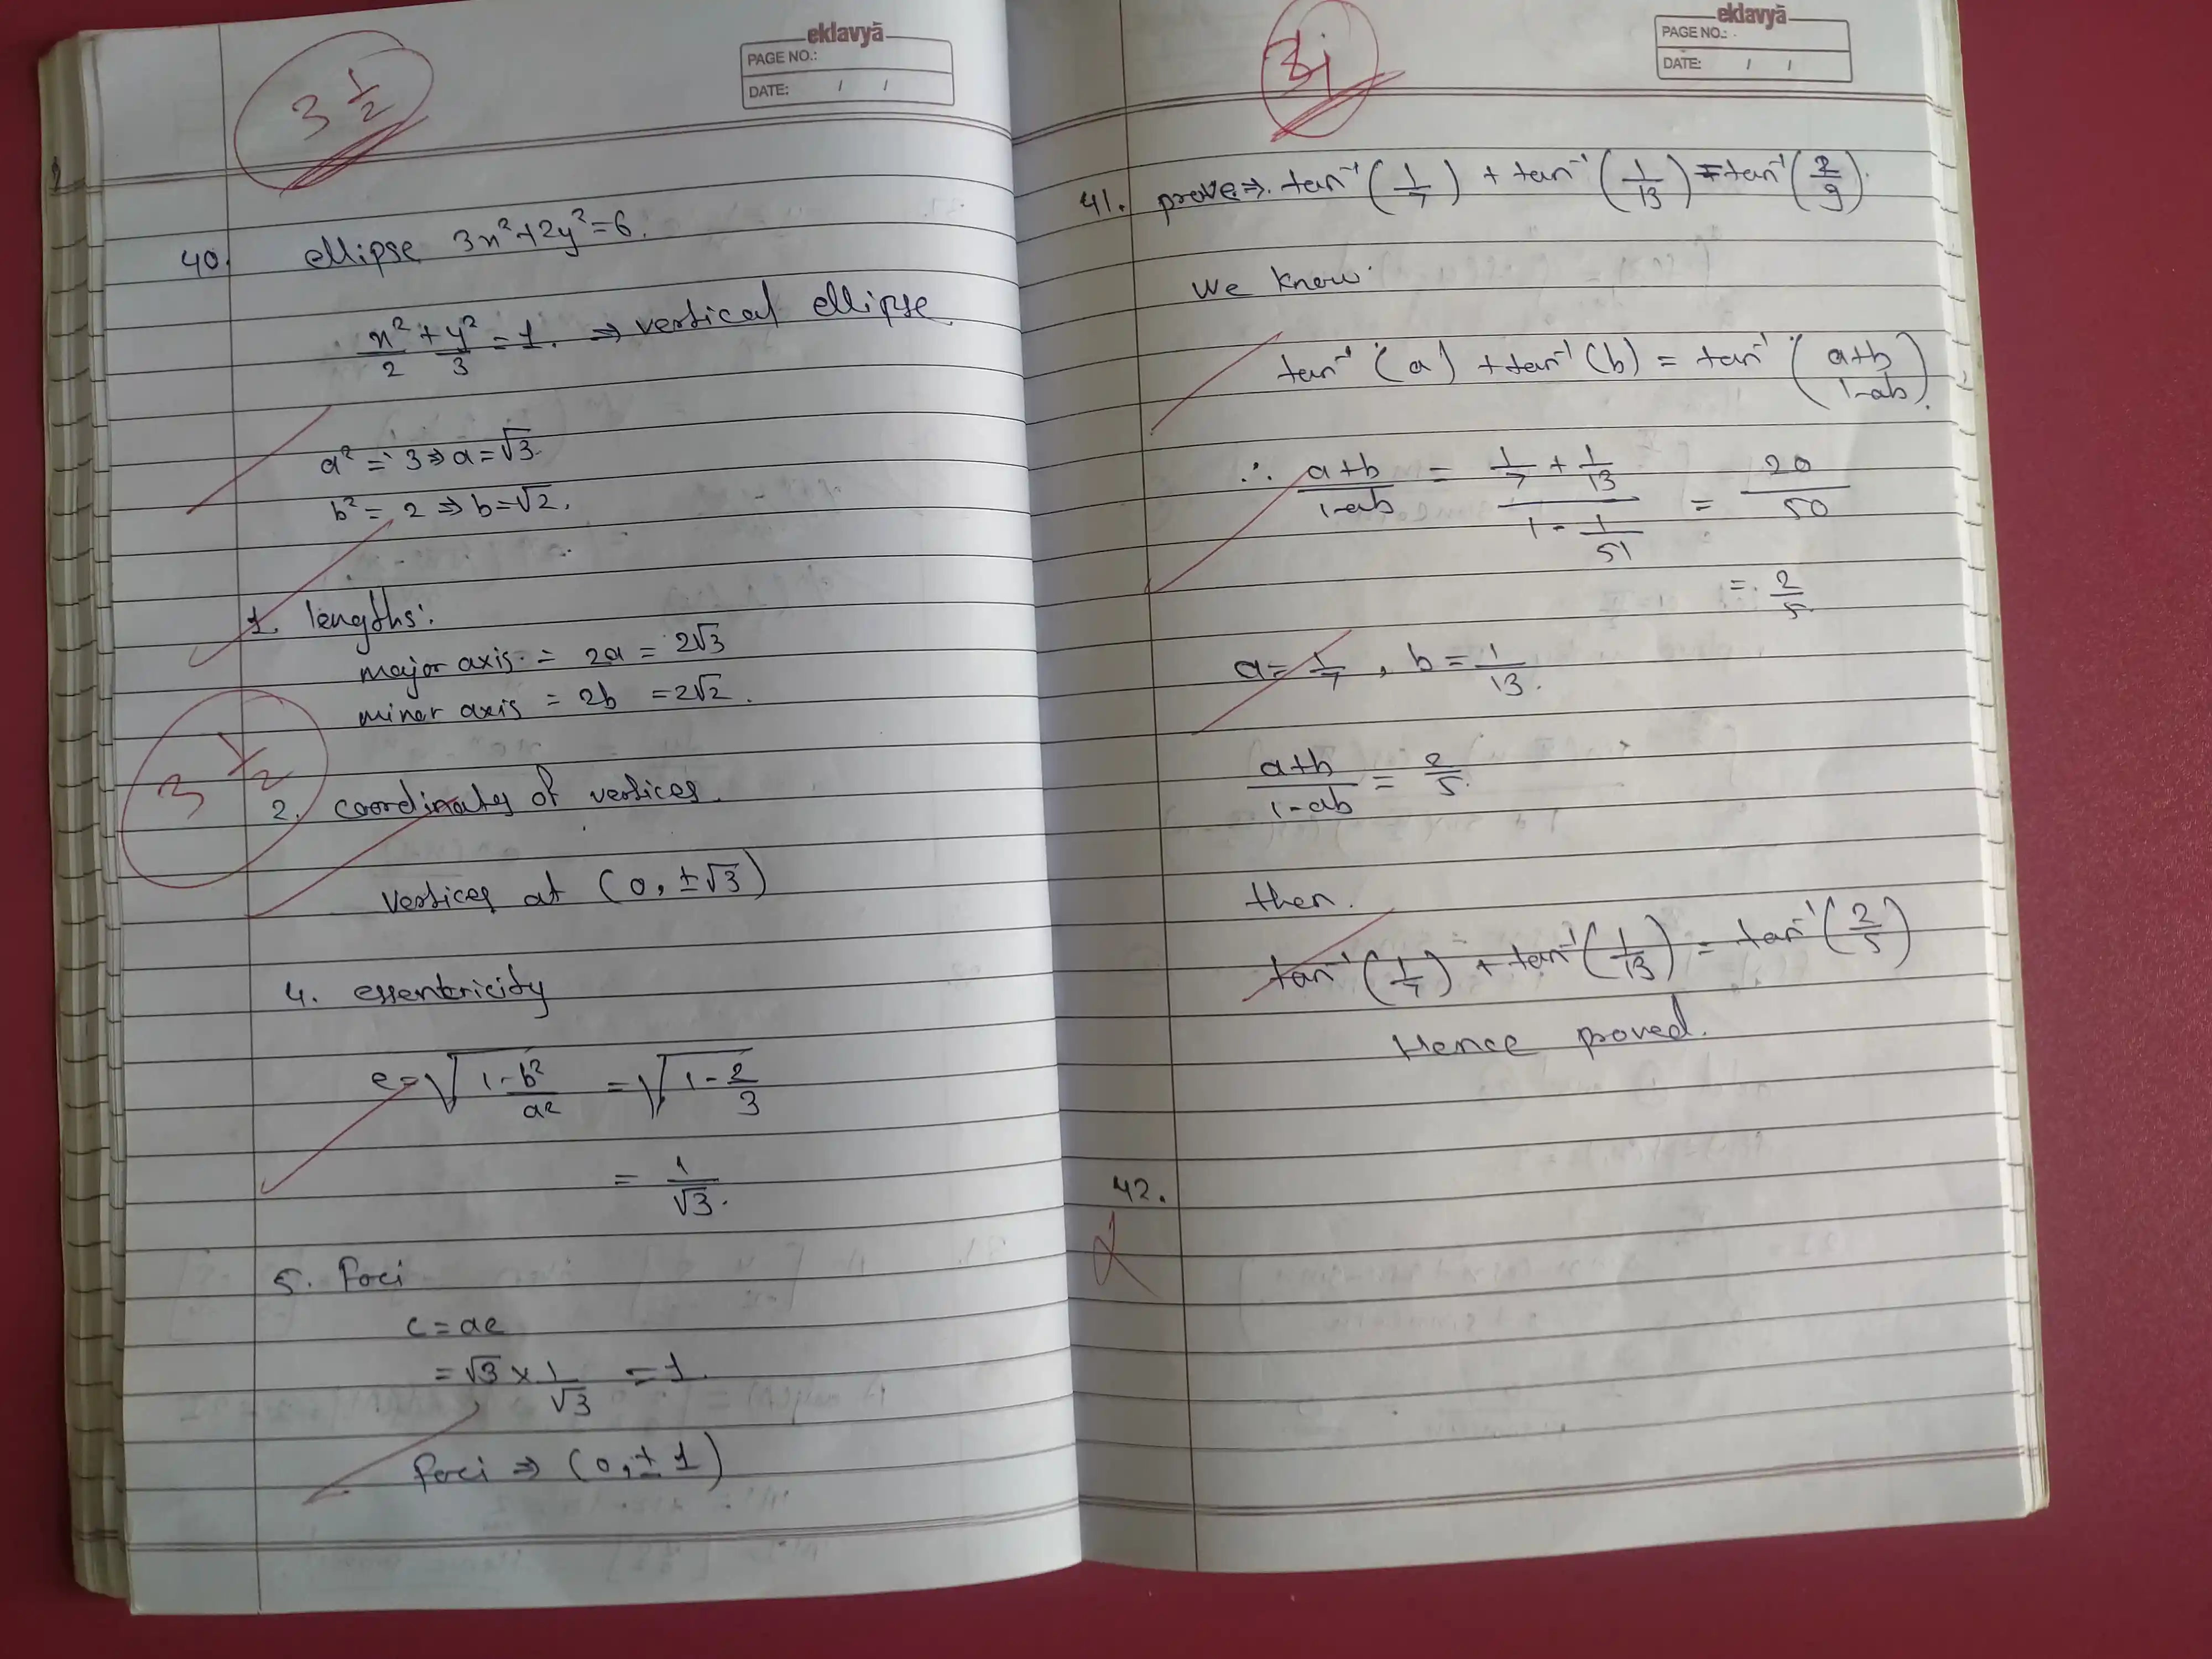 eklavyā
PAGE NO.:
DATE: / /
3 1/2
40. ellipse 3x²+2y²=6.
x²/2 + y²/3 = 1. ⇒ vertical ellipse
a² = 3 ⇒ a = √3
b² = 2 ⇒ b = √2.
1. lengths:
major axis = 2a = 2√3
miner axis = 2b = 2√2.
3 1/2
2. coordinates of vertices.
vertices at (0, ±√3)
4. essentricity
e = √(1 - b²/a²) = √(1 - 2/3)
= 1/√3.
5. foci
c = ae
= √3 × 1/√3 = 1.
foci ⇒ (0, ± 1)
eklavyā
PAGE NO.:
DATE: / /
41. prove ⇒ tan⁻¹(1/7) + tan⁻¹(1/13) = tan⁻¹(2/9).
We know
tan⁻¹(a) + tan⁻¹(b) = tan⁻¹((a+b)/(1-ab)).
∴ (a+b)/(1-ab) = (1/7 + 1/13)/(1 - 1/51) = 20/50
= 2/5
a = 1/7, b = 1/13.
(a+b)/(1-ab) = 2/5.
then.
tan⁻¹(1/7) + tan⁻¹(1/13) = tan⁻¹(2/5)
Hence proved.
42.